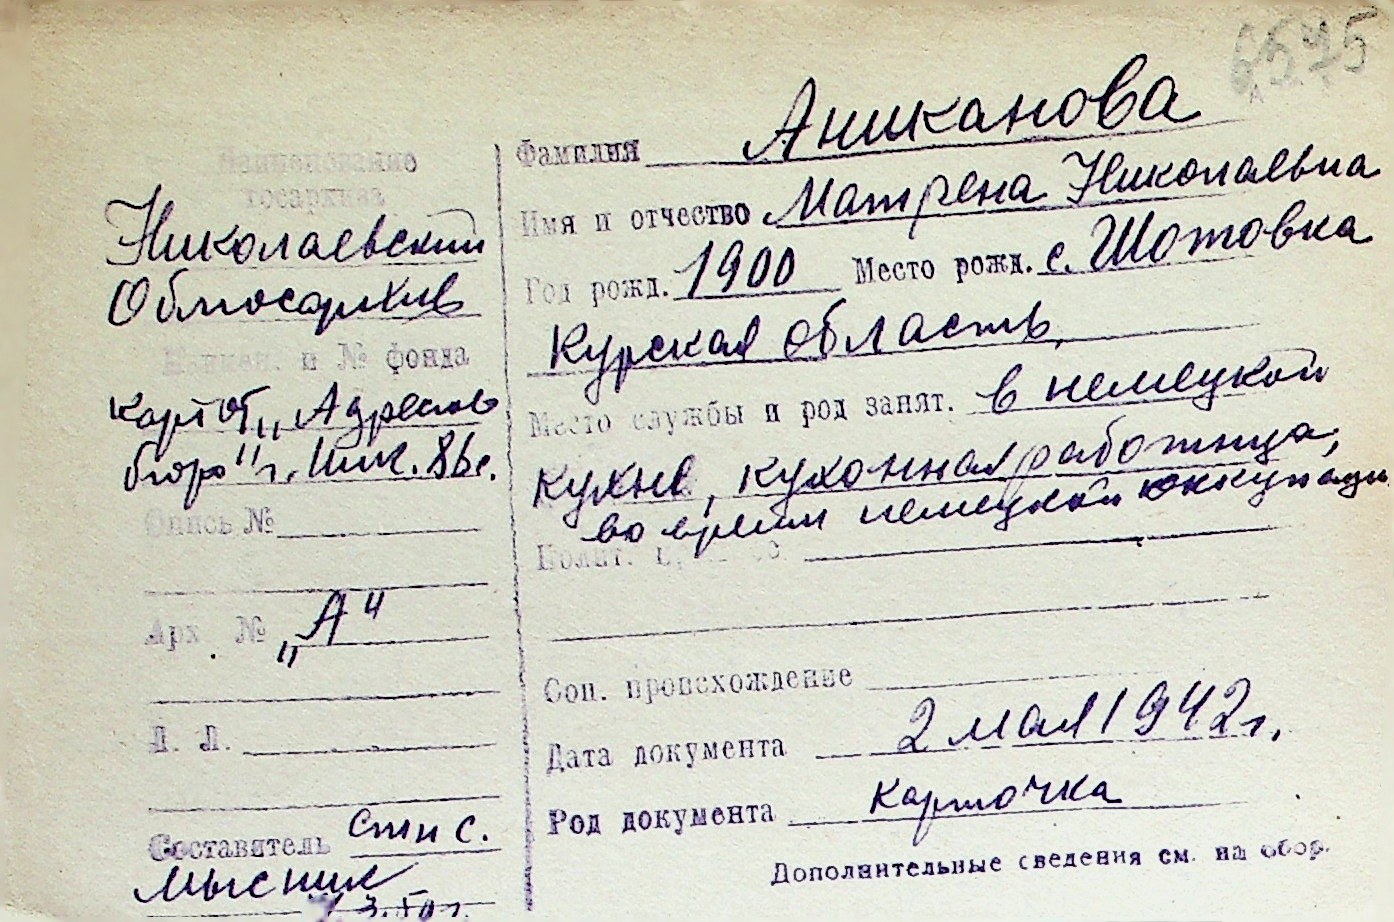 6575
Наименование
госархива
Николаевский
Облгосархив
Наимен. и № фонда
Картот „Адресного
бюро" г. Ник.
Опись №
Арх. № „А"
Л. Л.
Составитель стнс.
Мысник
Фамилия Аниканова
Имя и отчество Матрена Николаевна
Год рожд. 1900 Место рожд. с. Шотовка
Курская область,
Место службы и род занят. в немецкой
кухне, кухонная работница,
во время немецкой оккупации
Полит.
Соц. происхождение
Дата документа 2 мая 1942 г.
Род документа Карточка
Дополнительные сведения см. на обор.